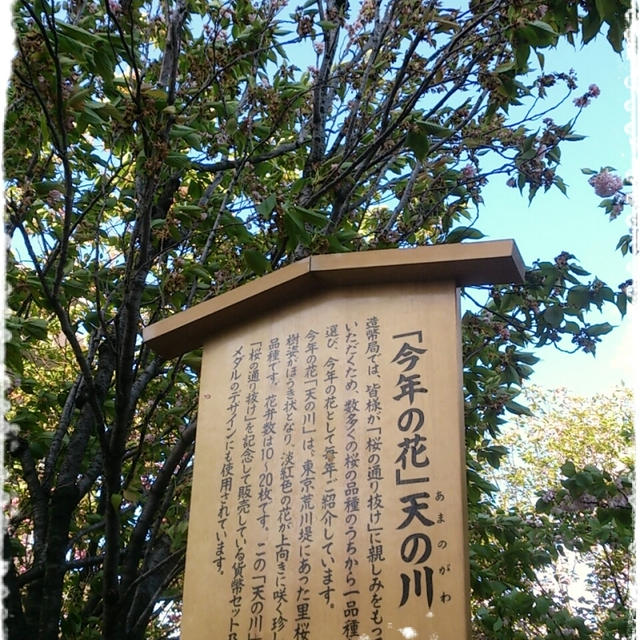 「今年の花」天の川
あまのがわ
造幣局では、皆様が「桜の通り抜け」に親しみをもっ
いただくため、数多くの桜の品種のうちから一品種
選び、今年の花として毎年ご紹介しています。
今年の花「天の川」は、東京・荒川堤にあった里桜
樹姿がほうき状となり、淡紅色の花が上向きに咲く珍し
品種です。花弁数は10〜20枚です。この「天の川」
「桜の通り抜け」を記念して販売している貨幣セット及
メダルのデザインにも使用されています。